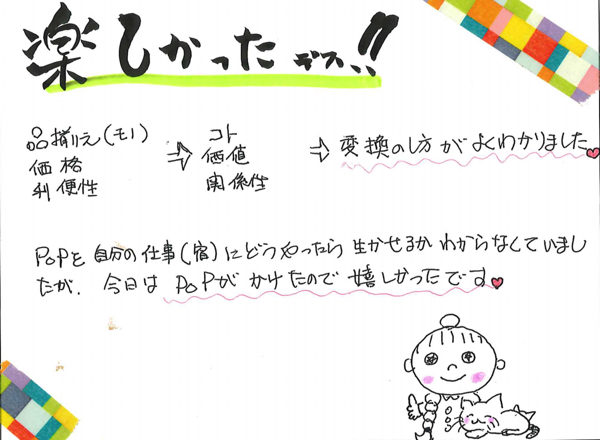 楽しかったデス!!
品揃え(モノ)
価格
利便性
⇨
コト
価値
関係性
⇨ 変換のし方がよくわかりました
POPを自分の仕事(宿)にどうやったら生かせるかわからなくていまし
たが、今日はPOPがかけたので嬉しかったです